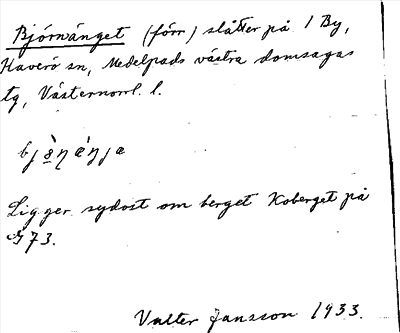 Björnänget (förr) slåtter på 1 By,
Haverö sn, Medelpads västra domsagas
tg, Västernorrl. l.
Ligger sydost om berget Koberget på
73.
Valter Jansson 1933.